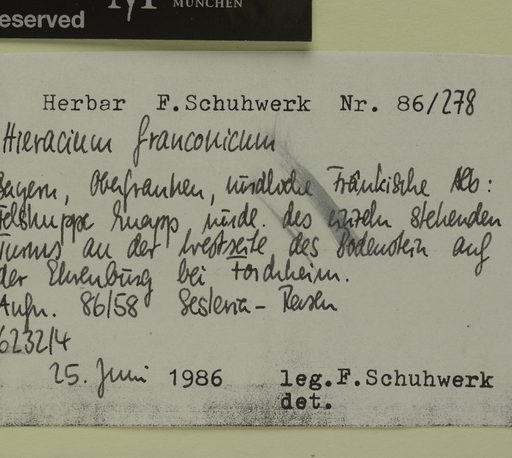 eserved
MÜNCHEN
Herbar F.Schuhwerk Nr. 86/278
Hieracium franconicum
Bayern, Oberfranken, nördliche Fränkische Alb:
Felskuppe knapp nördl. des einzeln stehenden
Turms an der Westseite des Rodenstein auf
der Ehrenbürg bei Forchheim.
Aufn. 86/58 Sesleria-Rasen
6232/4
25. Juni 1986 leg.F.Schuhwerk
det.